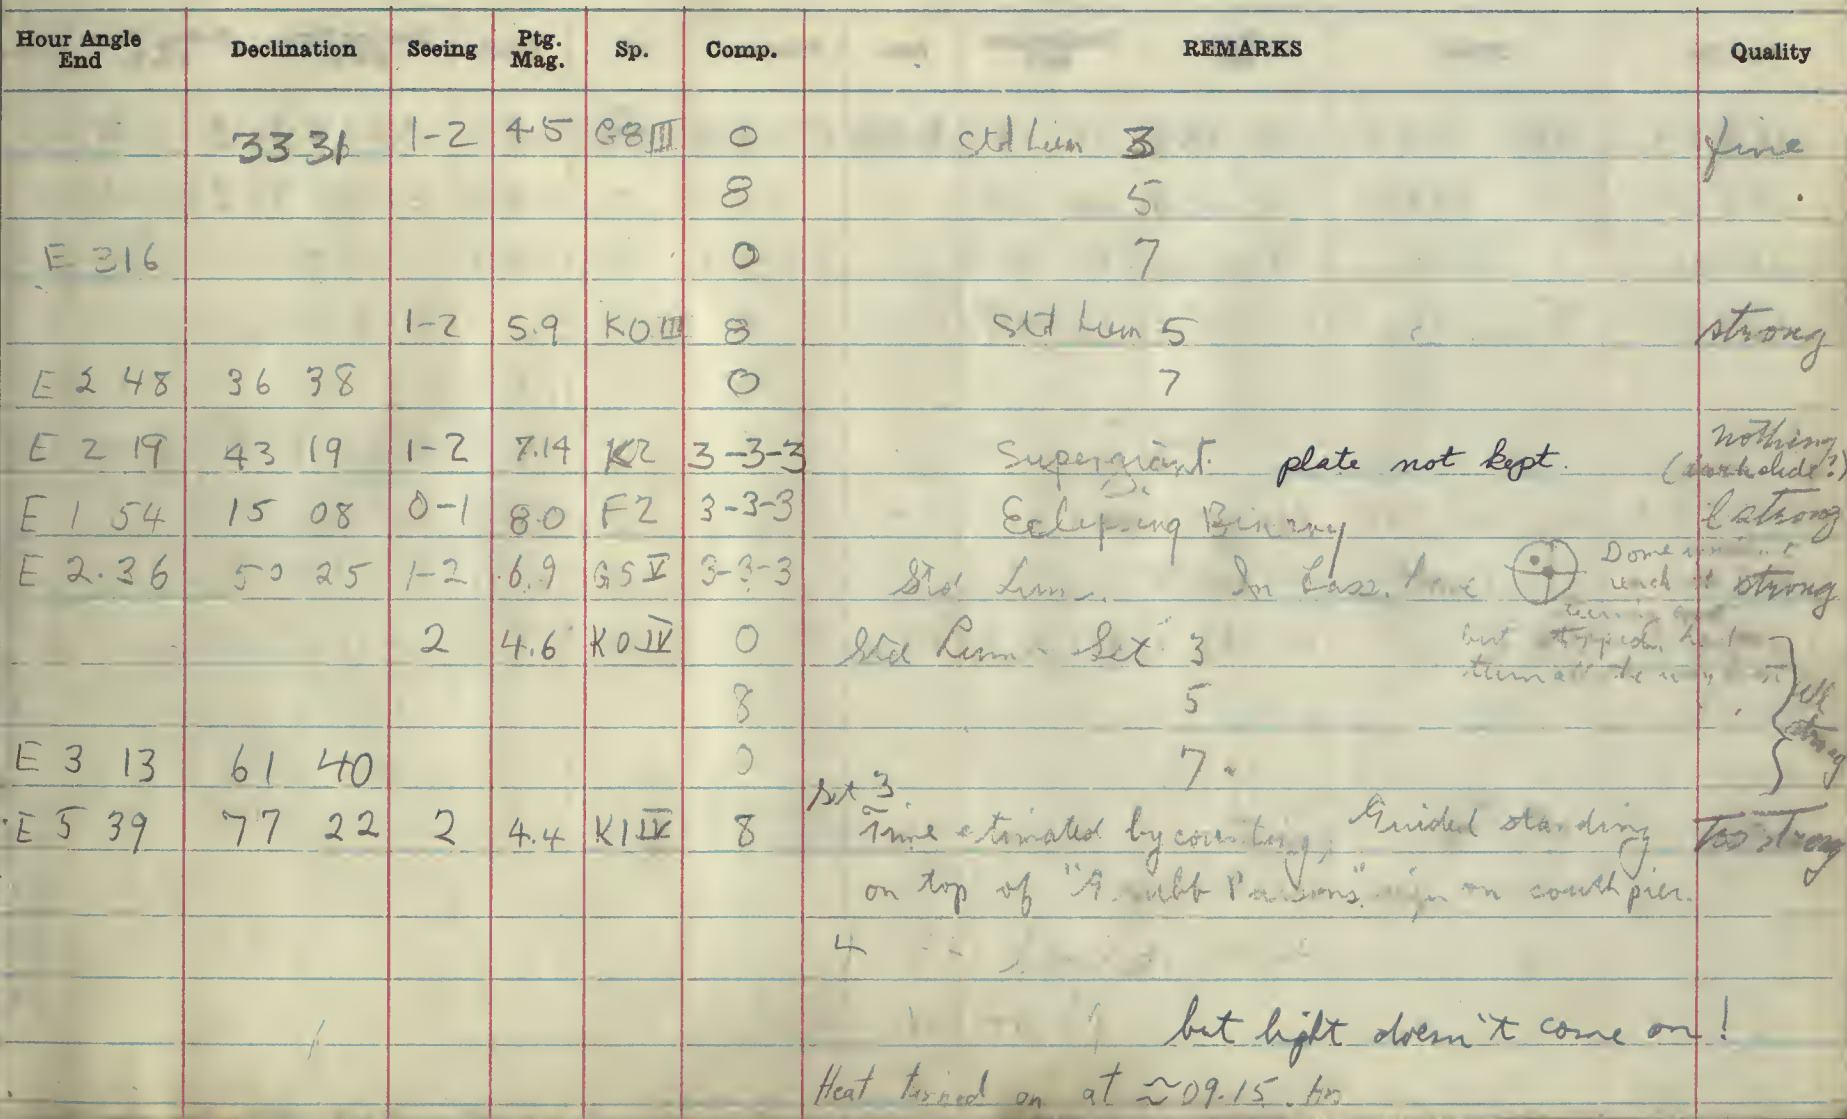 Hour Angle End Declination Seeing Ptg. Mag. Sp. Comp. REMARKS Quality
33 31 1-2 4.5 G8III 0 Std Lum 3 fine
8 5
E 316 0 7
1-2 5.9 K0III 8 Std Lum 5 strong
E 2 48 36 38 0 7
E 2 19 43 19 1-2 7.14 K2 3-3-3 Supergiant. plate not kept. nothing (darkslide?)
E 1 54 15 08 0-1 8.0 F2 3-3-3 Eclipsing Binary strong
E 2.36 50 25 1-2 6.9 G5V 3-3-3 Std Lum. In Cass. Dome strong
but stopped
2 4.6 K0IV 0 Std Lum - Set 3
8 5
strong
E 3 13 61 40 0 7
Set 3
E 5 39 77 22 2 4.4 K1IV 8 Time estimated by counting, Guided standing Too strong
on top of "Grubb Parsons" sign on south pier.
4
but light doesn't come on!
Heat turned on at ≈09.15. hrs